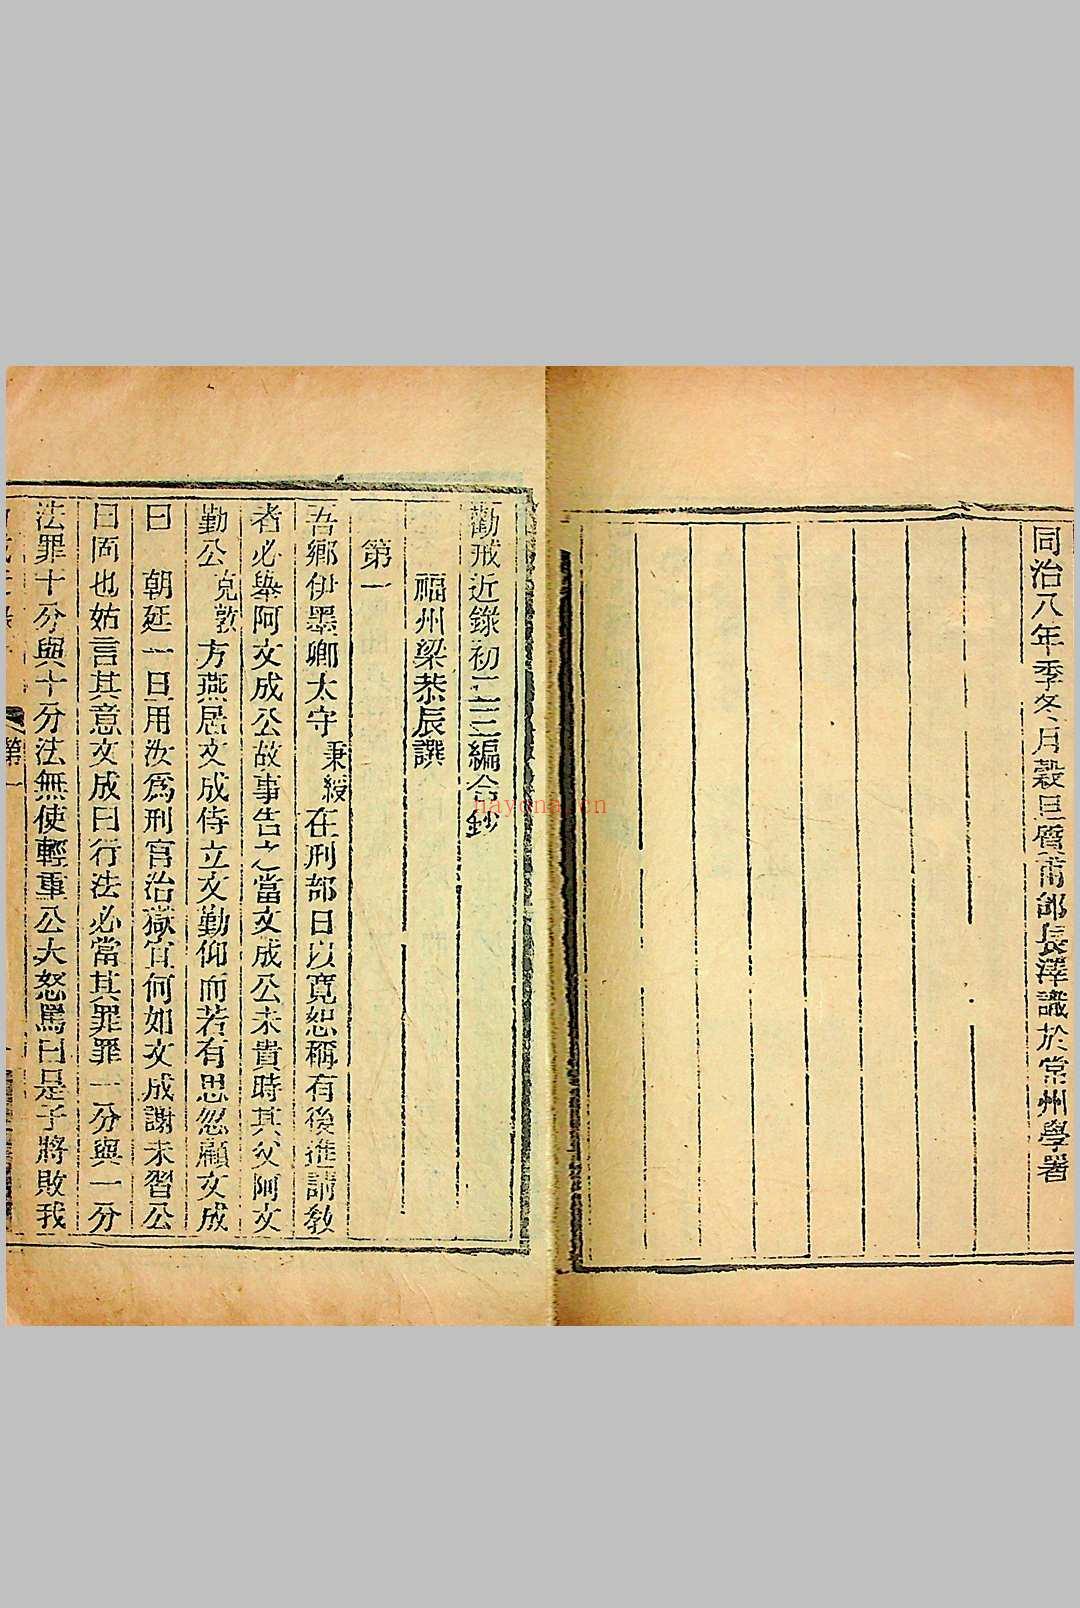 同治八年季冬月穀旦質甫邰長澤識於常州學署
勸戒近錄初二三編合鈔
福州梁恭辰譔
第一
吾鄉伊墨卿太守秉綬在刑部日以寬恕稱有後進請教
者必舉阿文成公故事告之當文成公未貴時其父阿文
勤公克敦方燕居文成侍立文勤仰而若有思忽顧文成
曰朝廷一旦用汝爲刑官治獄宜何如文成謝未習公
曰固也姑言其意文成曰行法必當其罪罪一分與一分
法罪十分與十分法無使輕重公大怒罵曰是子將敗我
第一
hayona.cn